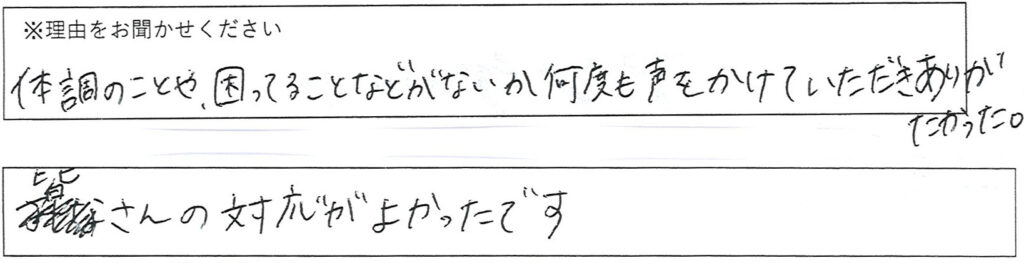 ※理由をお聞かせください
体調のことや、困ってることなどがないか何度も声をかけていただきありが
たかった。
皆さんの対応がよかったです